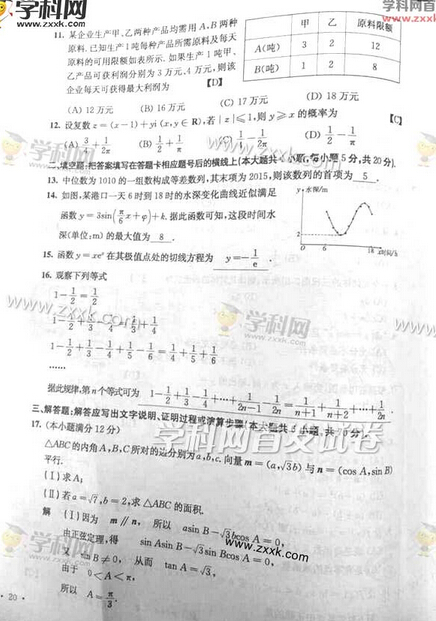 学科网
www.zxxk.com
11. 某企业生产甲、乙两种产品均需用 A、B 两种
原料.已知生产1吨每种产品所需原料及每天
原料的可用限额如表所示. 如果生产1吨甲、
乙产品可获利润分别为3万元、4万元,则该
企业每天可获得最大利润为 【D】
甲 乙 原料限额
A(吨) 3 2 12
B(吨) 1 2 8
(A) 12万元 (B) 16万元 (C) 17万元 (D) 18万元
12. 设复数 z=(x-1)+yi (x,y∈R),若 |z|≤1,则 y≥x 的概率为 【C】
(A) 3/4+1/2π (B) 1/2+1/π (C) (D) 1/2-1/π
二、填空题:把答案填写在答题卡相应题号后的横线上(本大题共4小题,每小题5分,共20分).
13. 中位数为1010的一组数构成等差数列,其末项为2015,则该数列的首项为 5 .
14. 如图,某港口一天6时到18时的水深变化曲线近似满足
函数 y=3sin(π/6 x+φ)+k.据此函数可知,这段时间水
深(单位:m)的最大值为 8 .
y水深/m
2
O 6 18 x时间/h
15. 函数 y=xe^x 在其极值点处的切线方程为 y=-1/e .
16. 观察下列等式
1-1/2=1/2
1-1/2+1/3-1/4=1/3+1/4
1-1/2+1/3-1/4+1/5-1/6=1/4+1/5+1/6
……
据此规律,第n个等式可为 1-1/2+1/3-1/4+…+1/2n-1-1/2n=1/n+1+1/n+2+…+1/2n .
三、解答题:解答应写出文字说明、证明过程或演算步骤(本大题共5小题,共70分)
17. (本小题满分12分)
△ABC的内角A,B,C所对的边分别为a,b,c.向量 m=(a,√3b) 与 n=(cos A,sin B)
平行.
(Ⅰ)求A;
(Ⅱ)若a=√7,b=2,求△ABC的面积.
解 (Ⅰ)因为 m∥n, 所以 asin B-√3bcos A=0,
由正弦定理,得 sin Asin B-√3sin Bcos A=0,
又 sin B≠0, 从而 tan A=√3,
由于 0<A<π,
所以 A=π/3.
· 20 ·
学科网首发试卷